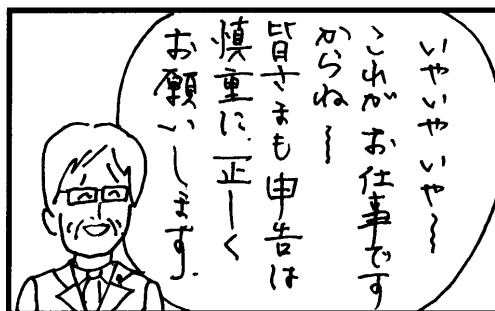 いやいやいや〜
これがお仕事です
からね〜
皆さまも申告は
慎重に、正しく
お願いします.